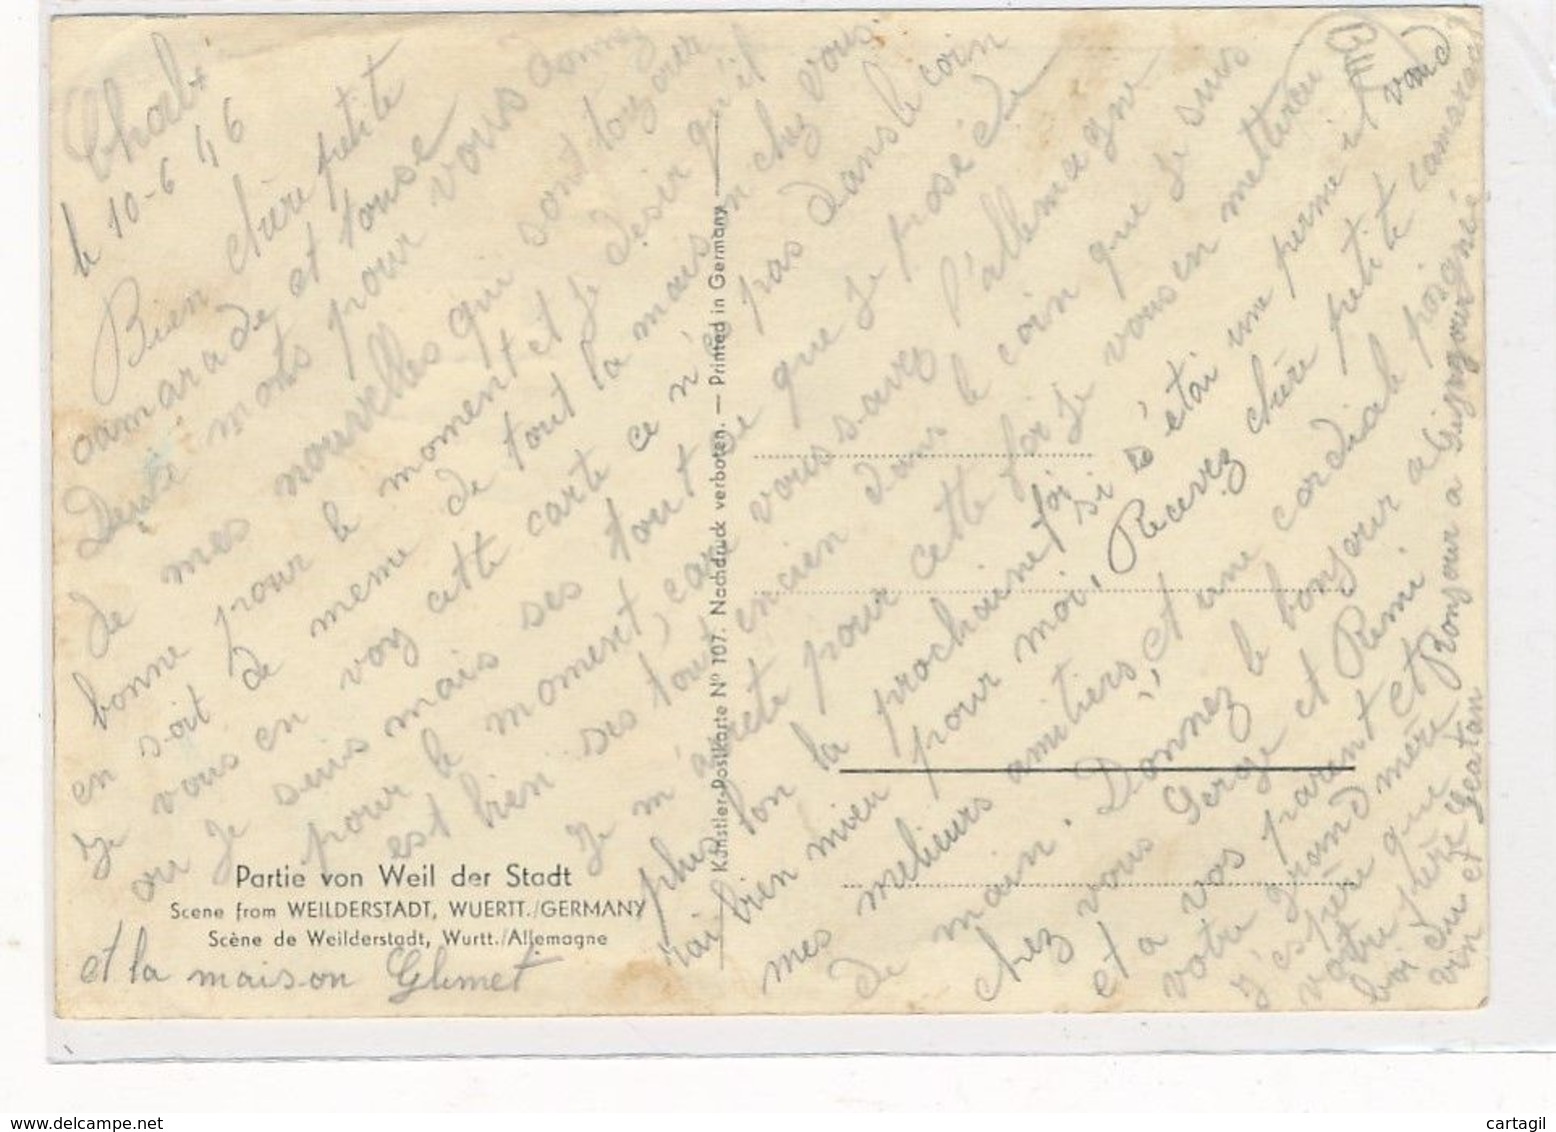 le 10-6 46
Bien chère petite
camarade et touse
Deuse mots pour vous donnez
de mes nouvelles qui sont toujour
bonne pour le moment et je désir qu'il
en soit de meme de tout la maison chez vous.
Je vous en voy cette carte ce n'é pas dans le coin
ou je suis mais ses tout se que je posède
pour le moment, car vous savez l'allemagne
est bien ses tout encien dans le coin que je suis
Je m'arete pour cette foi je vous en metterer
plus lon la prochaine foi si s'étai une perme il vaud
rai bien mieu pour moi, Recevez chère petite camarade
mes meilieurs amitiers, et une cordiale poigné
de main. Donnez le bonjour a
chez vous Serge et Remi
et a vos parent et
votre grand mère
J'espère que
votre père
boi du
vin et
Bonjour a
Geatan
et la maison Glemet
Partie von Weil der Stadt
Scene from WEILDERSTADT, WUERTT./GERMANY
Scène de Weilderstadt, Wurtt./Allemagne
Künstler-Postkarte Nº 107. Nachdruck verboten. — Printed in Germany
cartagil